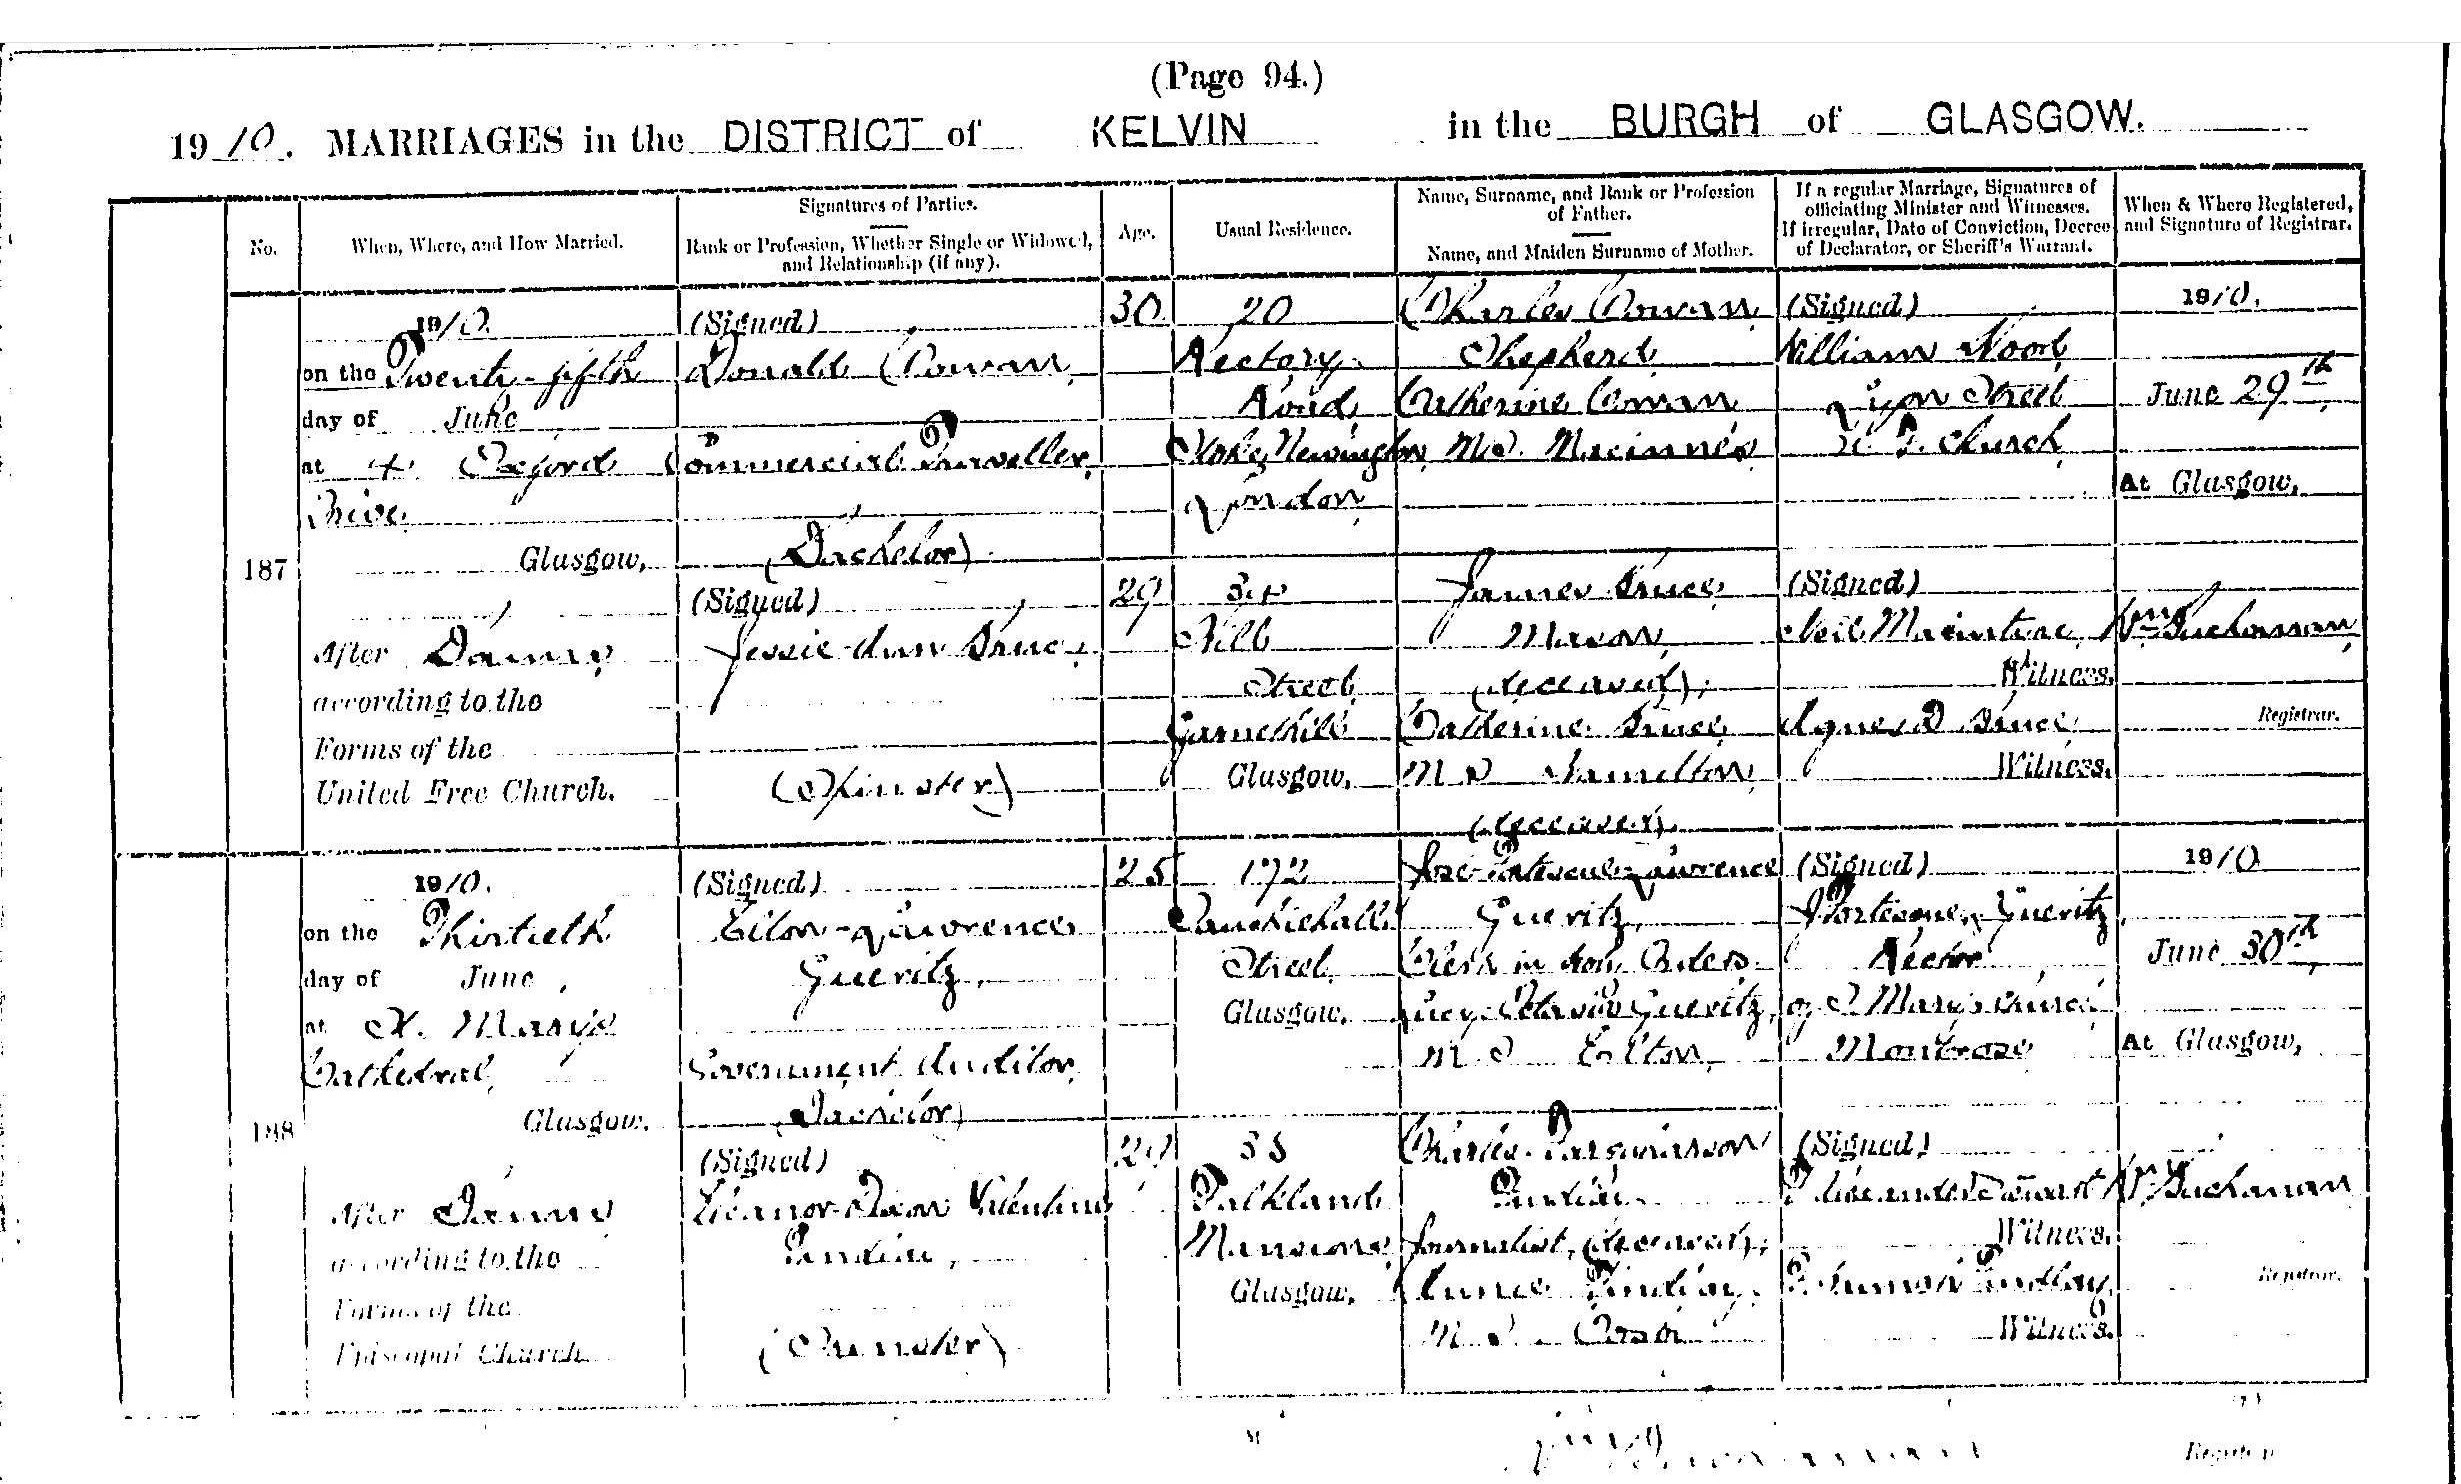 (Page 94.)
1910. MARRIAGES in the DISTRICT of KELVIN in the BURGH of GLASGOW.
No.
When, Where, and How Married.
Signatures of Parties.
Rank or Profession, Whether Single or Widowed, and Relationship (if any).
Age.
Usual Residence.
Name, Surname, and Rank or Profession of Father.
Name, and Maiden Surname of Mother.
If a regular Marriage, Signatures of officiating Minister and Witnesses.
If irregular, Date of Conviction, Decree of Declarator, or Sheriff's Warrant.
When & Where Registered, and Signature of Registrar.
187
1910.
on the Twenty-fifth
day of June
at 4 Oxford
Drive
Glasgow,
After Banns
according to the
Forms of the
United Free Church.
(Signed)
Donald Cowan
Commercial Traveller
(Bachelor)
(Signed)
Jessie Ann Bruce
(Spinster)
30
29
20
Rectory
Road
Stoke Newington
London
34
Hill
Street
Garnethill
Glasgow.
Charles Cowan
Shepherd
Catherine Cowan
M.S. Macinnes
James Bruce
Mason
(deceased);
Catherine Bruce
M S Hamilton
(deceased).
(Signed)
William Wood
Lyon Street
U. F. Church
(Signed)
Neil Macintyre
Witness.
Agnes D Bruce
Witness.
1910.
June 29th
At Glasgow,
Wm Buchanan
Registrar.
188
1910.
on the Thirtieth
day of June,
at St. Mary's
Cathedral,
Glasgow.
After Banns
according to the
Forms of the
Episcopal Church
(Signed)
Elton Lawrence
Gueritz,
Government Auditor
(Bachelor)
(Signed)
Eleanor Dixon Valentine
(Spinster)
25
29
172
Sauchiehall
Street
Glasgow.
Falkland
Mansions
Glasgow.
Fortescue Lawrence
Gueritz,
Clerk in Holy Orders
Lucy Octavia Gueritz,
M S Elton
Charles Farquharson
Findlay
Journalist, (deceased);
Annie Findlay,
M S
(Signed)
J Fortescue L Gueritz
Rector
of S Mary's Church
Montrose
(Signed)
Alexander Stewart
Witness.
Findlay
Witness.
1910
June 30th,
At Glasgow,
Wm Buchanan
Registrar.
Registrar